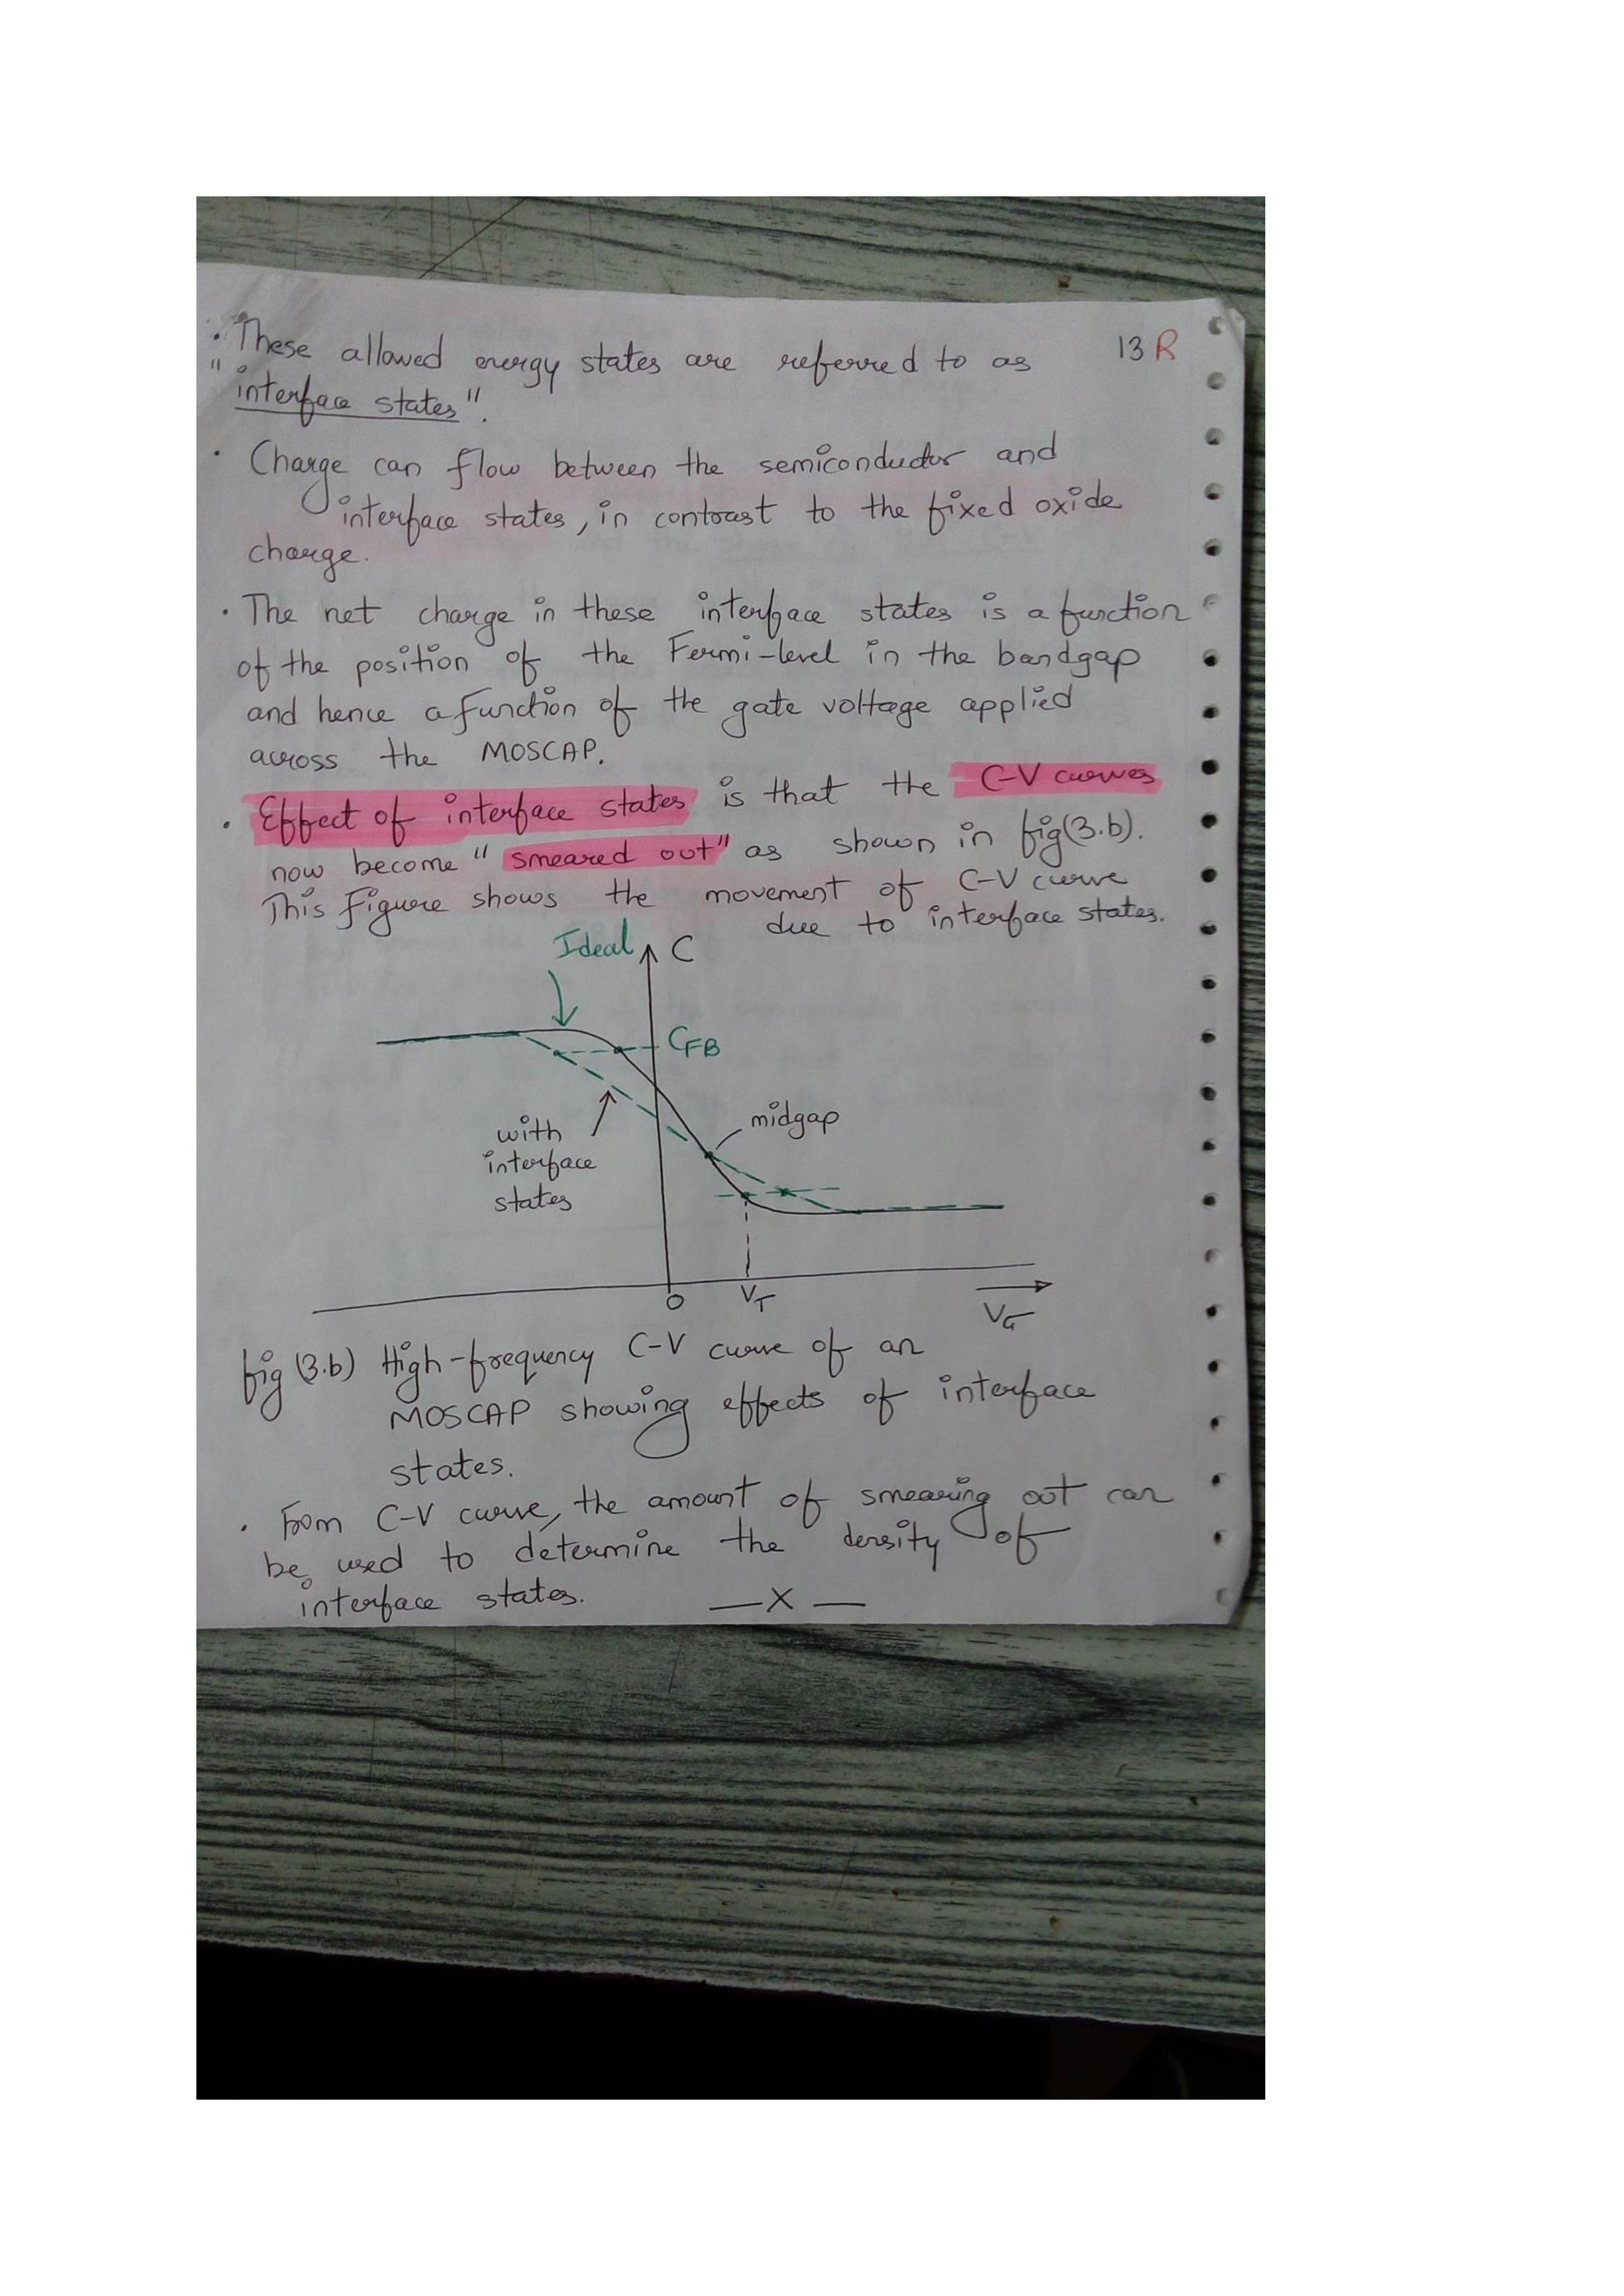 13 R
• These allowed energy states are referred to as
"interface states".
• Charge can flow between the semiconductor and
interface states, in contrast to the fixed oxide
charge.
• The net charge in these interface states is a function
of the position of the Fermi-level in the bandgap
and hence a function of the gate voltage applied
across the MOSCAP.
• Effect of interface states is that the C-V curves
now become "smeared out" as shown in fig(3.b).
This Figure shows the movement of C-V curve
due to interface states.
Ideal C
CFB
midgap
with
interface
states
0 VT
VG
fig (3.b) High-frequency C-V curve of an
MOSCAP showing effects of interface
states.
• From C-V curve, the amount of smearing out can
be used to determine the density of
interface states. —X—